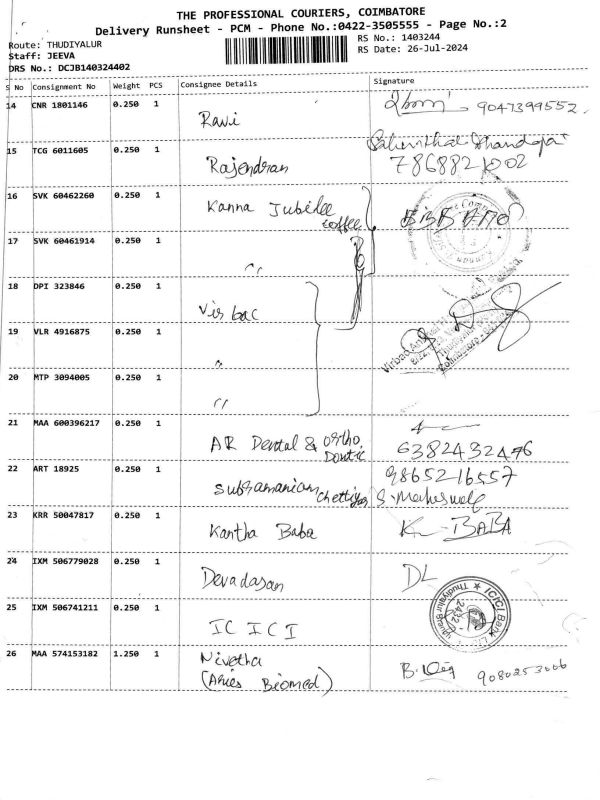 THE PROFESSIONAL COURIERS, COIMBATORE
Delivery Runsheet - PCM - Phone No.:0422-3505555 - Page No.:2
Route: THUDIYALUR
Staff: JEEVA
DRS No.: DCJB140324402
RS No.: 1403244
RS Date: 26-Jul-2024
S No Consignment No Weight PCS Consignee Details Signature
14 CNR 1801146 0.250 1 Ravi 9047399552
15 TCG 6011605 0.250 1 Rajendran
16 SVK 60462260 0.250 1 Kanna Jubilee
coffee
17 SVK 60461914 0.250 1 "
18 DPI 323846 0.250 1 Virbac
19 VLR 4916875 0.250 1 "
20 MTP 3094005 0.250 1 "
21 MAA 600396217 0.250 1 AR Dental & Ortho
Dontic 6382432476
22 ART 18925 0.250 1 Subramanian Chettiyar 9865216557
23 KRR 50047817 0.250 1 Kantha Baba K BABA
24 IXM 506779028 0.250 1 Devadasan DL
25 IXM 506741211 0.250 1 ICICI
ICICI Bank
Thudiyalur
26 MAA 574153182 1.250 1 Nivetha
(Aries Biomed)